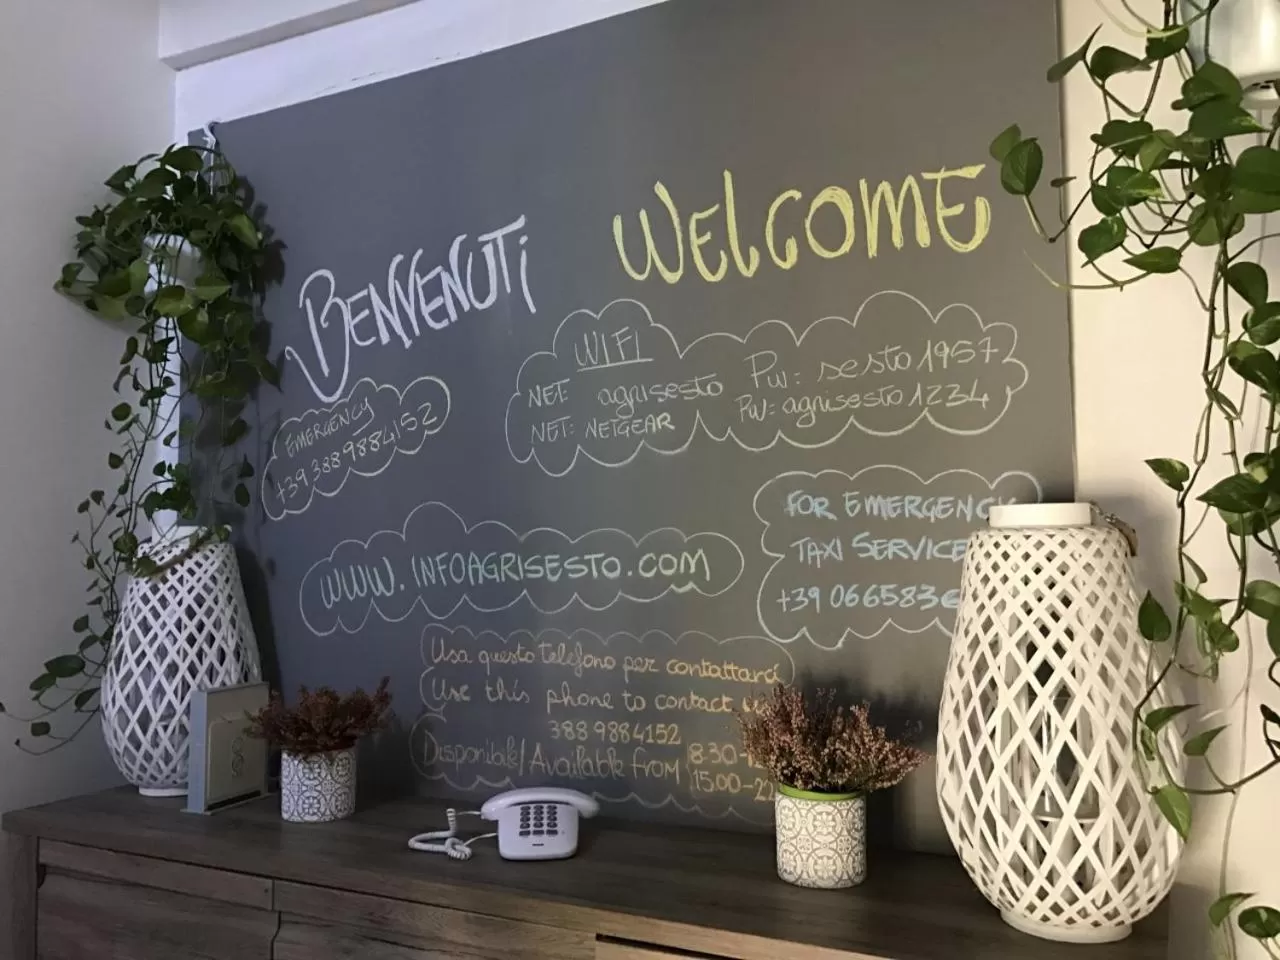 BENVENUTI
WELCOME
WIFI
NET: agrisesto Pw: sesto1957
NET: NETGEAR PW: agrisesto1234
EMERGENCY
+39 388 9884152
WWW.INFOAGRISESTO.COM
FOR EMERGENCY
TAXI SERVICE
+39 066583
Usa questo telefono per contattarci
Use this phone to contact
388 9884152
Disponibile/Available from 8:30-
15.00-